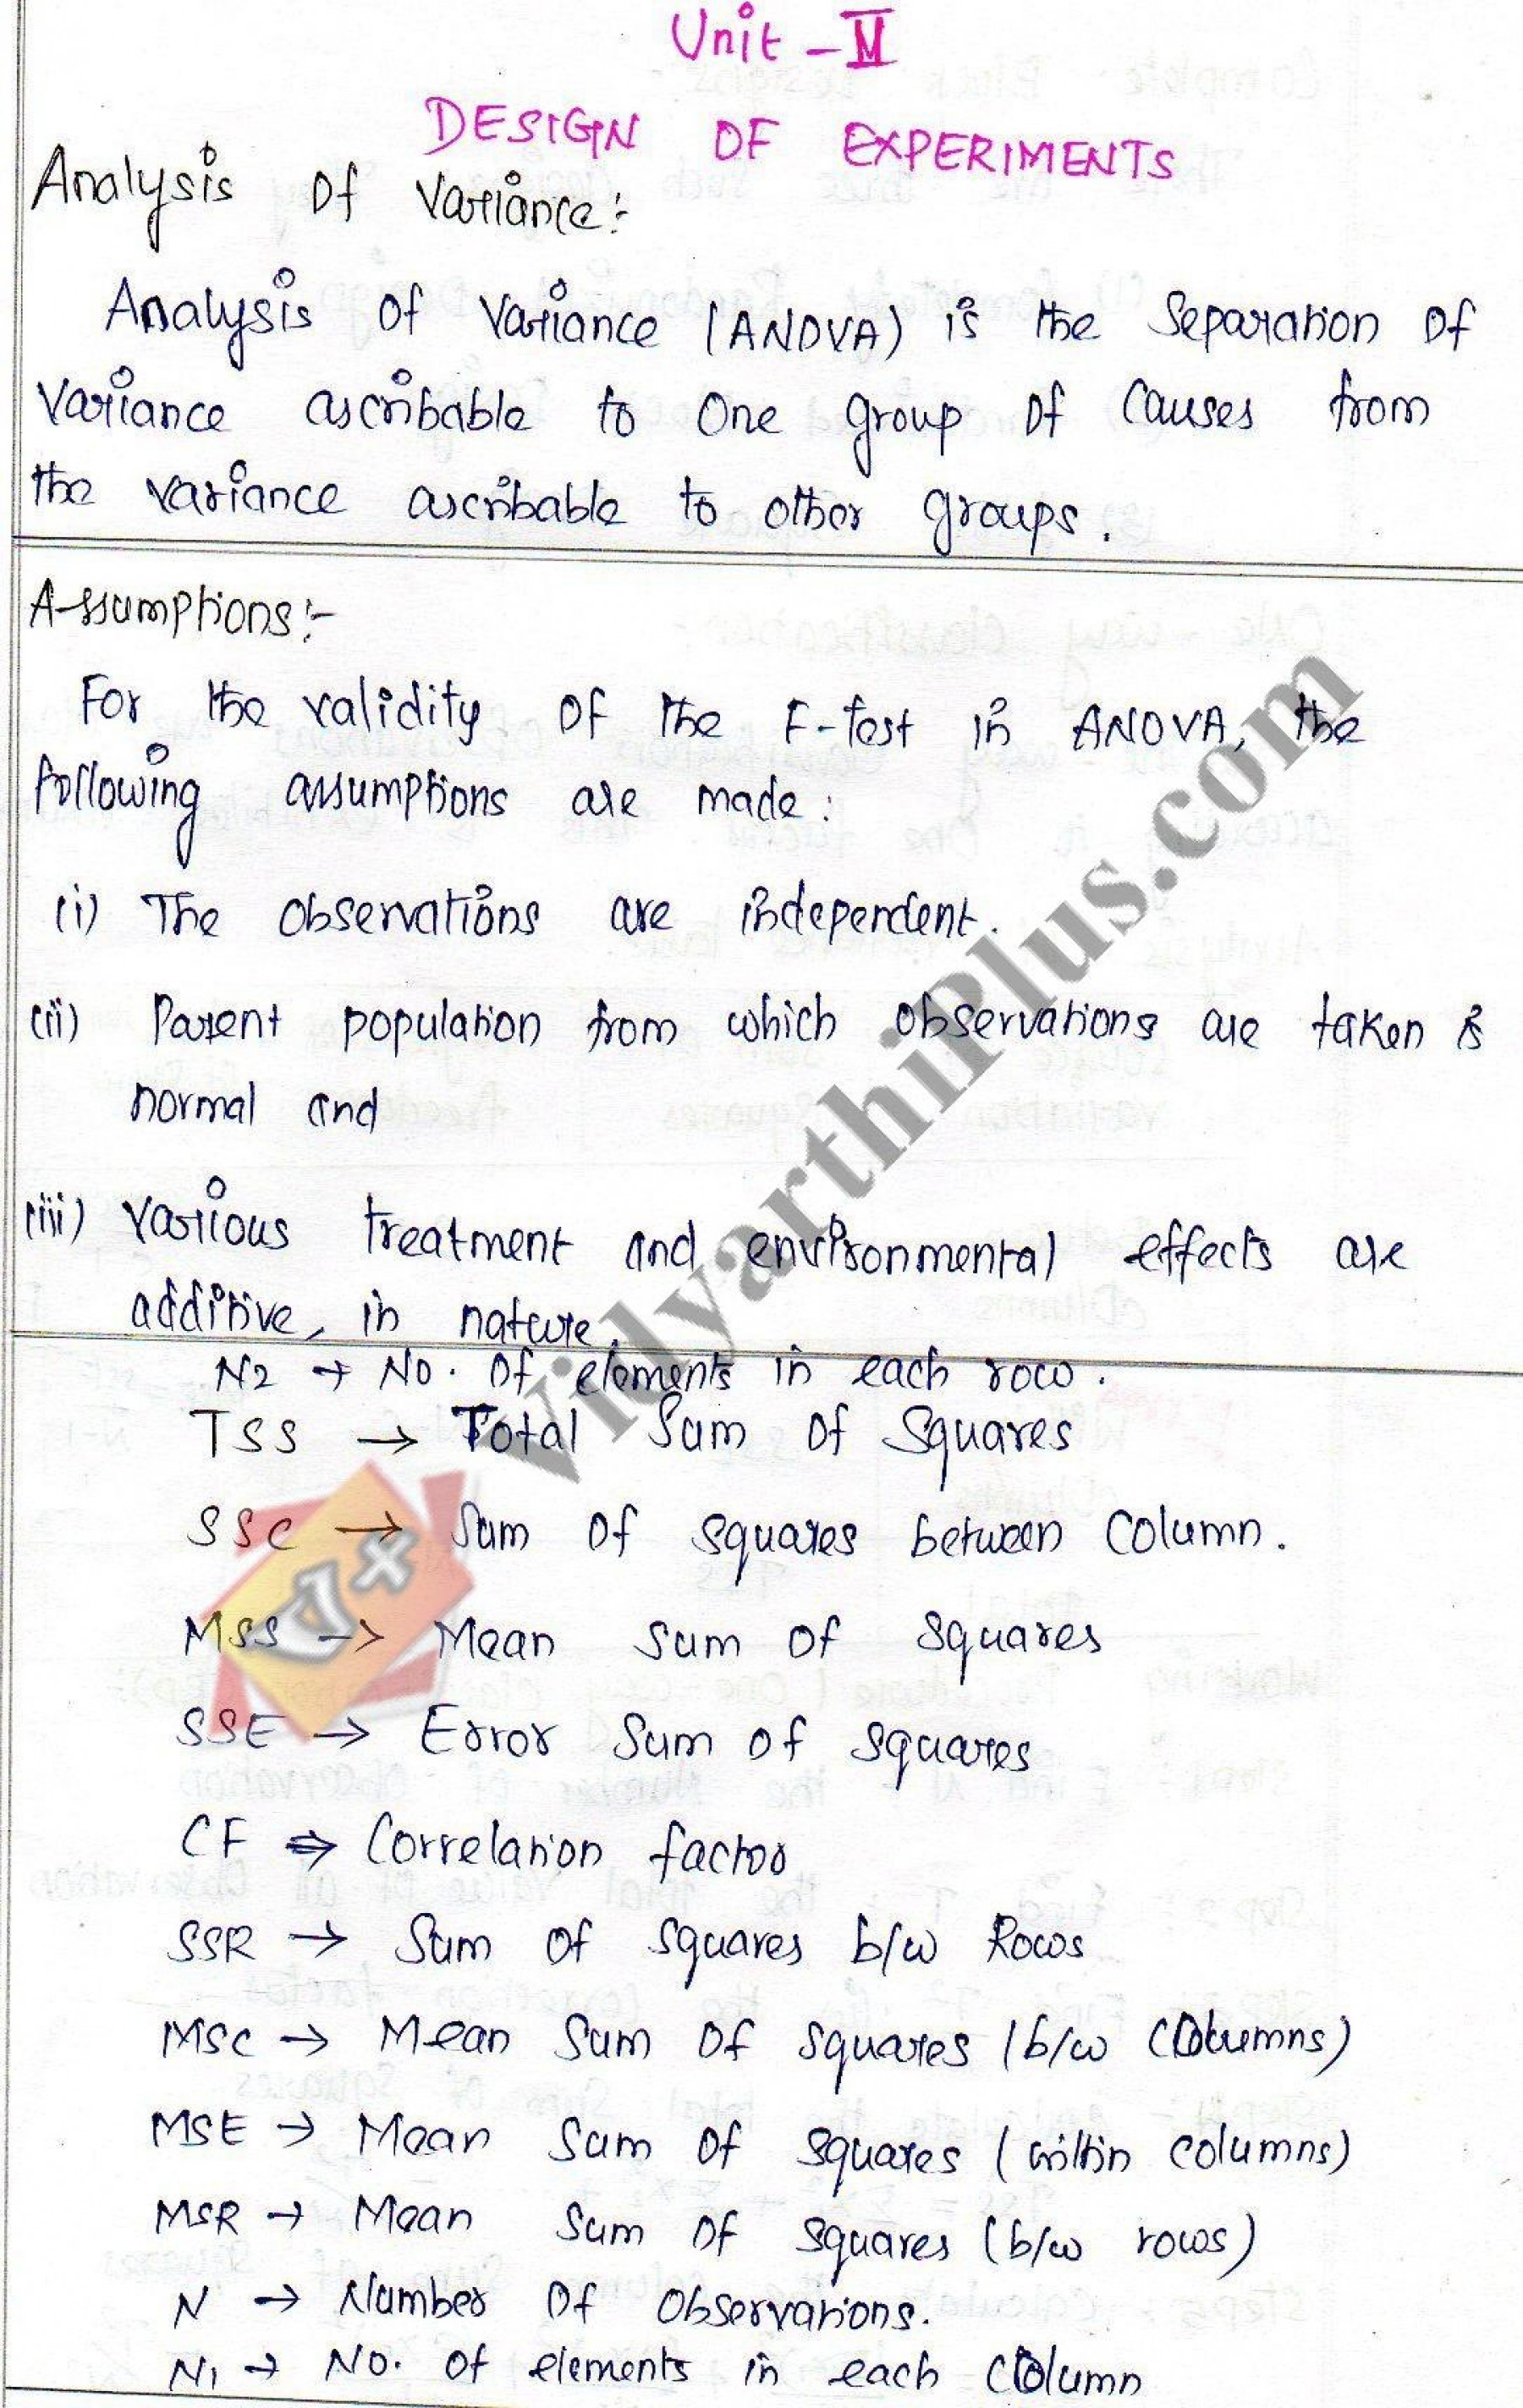 Unit - IV
DESIGN OF EXPERIMENTS
Analysis Of Variance:-
Analysis Of Variance (ANOVA) is the Separation Of
Variance ascribable to One group Of Causes from
the variance ascribable to other groups.
Assumptions:-
For the validity Of the F-test in ANOVA, the
following assumptions are made:
(i) The Observations are independent.
(ii) Parent population from which Observations are taken is
normal and
(iii) Various treatment and environmental effects are
additive, in nature.
N2 → No. Of elements in each row.
TSS → Total Sum Of Squares
SSC → Sum Of Squares between Column.
MSS → Mean Sum Of Squares
SSE → Error Sum Of Squares
CF ⇒ Correlation factor
SSR → Sum Of Squares b/w Rows
MSC → Mean Sum Of Squares (b/w Columns)
MSE → Mean Sum Of Squares (within columns)
MSR → Mean Sum Of Squares (b/w rows)
N → Number Of Observations.
N1 → No. Of elements in each Column
VidyarthiPlus.com
V+